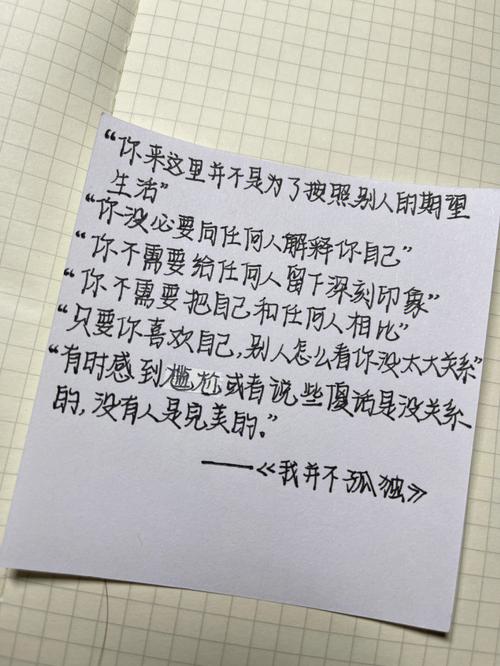 “你来这里并不是为了按照别人的期望
生活”
“你没必要向任何人解释你自己”
“你不需要给任何人留下深刻印象”
“你不需要把自己和任何人相比”
“只要你喜欢自己，别人怎么看你没太大关系”
“有时感到尴尬或者说些傻话是没关系
的，没有人是完美的。”
——《我并不孤独》